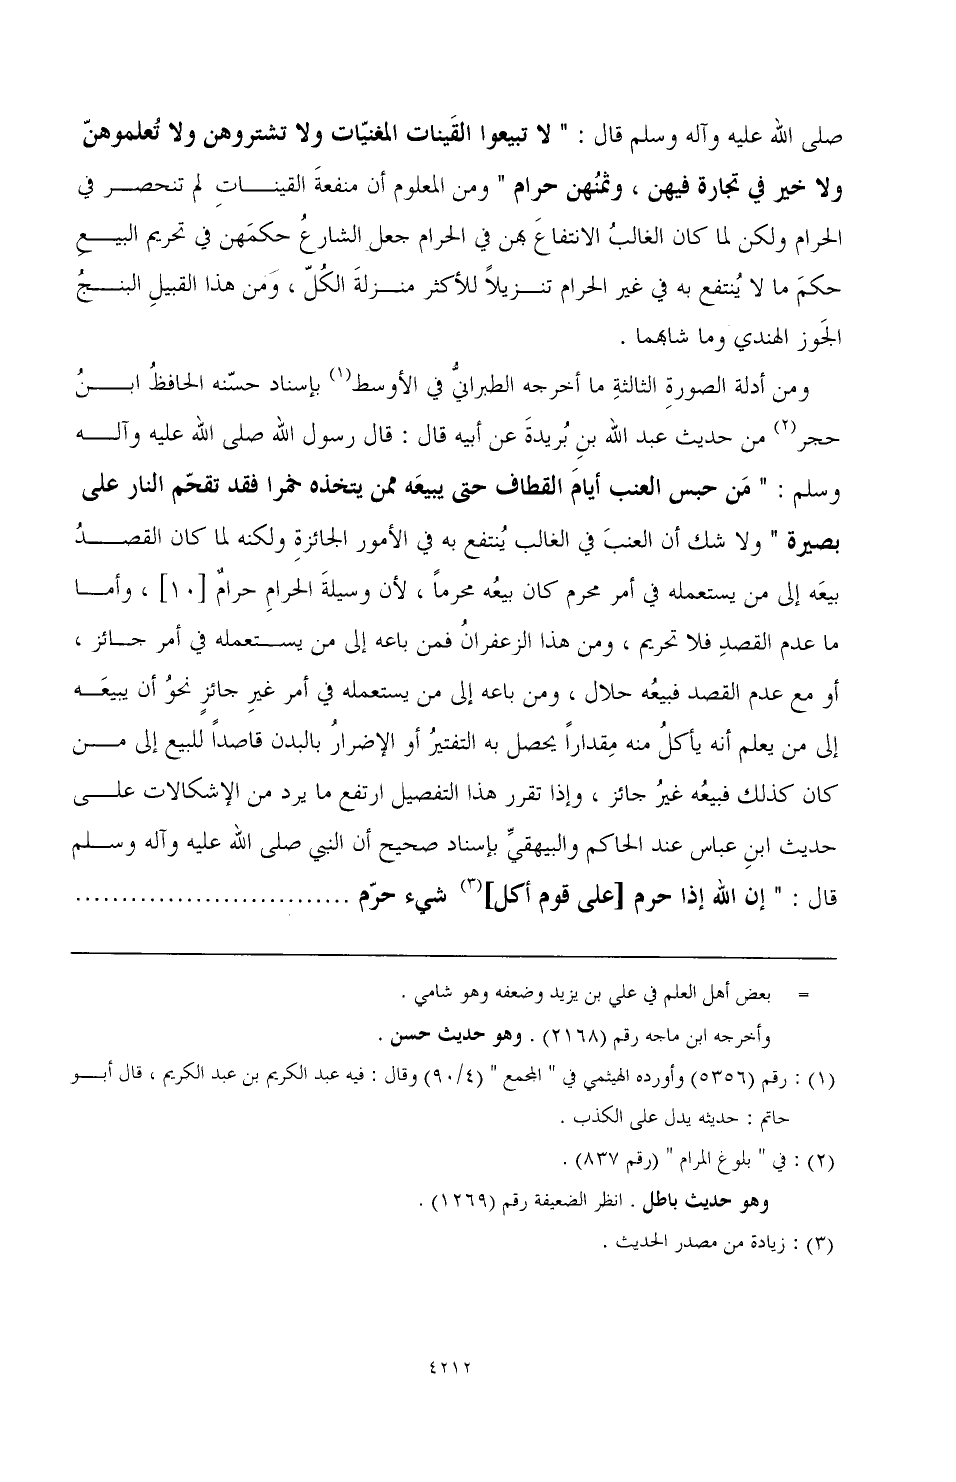 صلى الله عليه وآله وسلم قال : " لا تبيعوا القَينات المغنيّات ولا تشتروهن ولا تُعلموهنّ
ولا خير في تجارة فيهن ، وثمنُهن حرام " ومن المعلوم أن منفعةَ القينـات لم تنحصر في
الحرام ولكن لما كان الغالبُ الانتفاعَ بهن في الحرام جعل الشارعُ حكمَهن في تحريم البيع
حكمَ ما لا يُنتفع به في غير الحرام تنزيلاً للأكثر منزلةَ الكُلّ ، وَمن هذا القبيلِ البنجُ
الجَوز الهندي وما شابهما .
ومن أدلة الصورةِ الثالثةِ ما أخرجه الطبرانيُّ في الأوسط(١) بإسناد حسّنه الحافظُ ابنُ
حجر(٢) من حديث عبد الله بنِ بُريدةَ عن أبيه قال : قال رسول الله صلى الله عليه وآله
وسلم : " مَن حبس العنب أيامَ القطاف حتى يبيعَه ممن يتخذه خمرا فقد تقحّم النار على
بصيرة " ولا شك أن العنبَ في الغالب يُنتفع به في الأمور الجائزةِ ولكنه لما كان القصدُ
بيعَه إلى من يستعمله في أمر محرم كان بيعُه محرماً ، لأن وسيلةَ الحرامِ حرامٌ [١٠] ، وأما
ما عدم القصدِ فلا تحريم ، ومن هذا الزعفرانُ فمن باعه إلى من يستعمله في أمر جائز ،
أو مع عدم القصد فبيعُه حلال ، ومن باعه إلى من يستعمله في أمر غيرِ جائزٍ نحوُ أن يبيعَه
إلى من يعلم أنه يأكلُ منه مِقداراً يحصل به التفتيرُ أو الإضرارُ بالبدن قاصداً للبيع إلى من
كان كذلك فبيعُه غيرُ جائز ، وإذا تقرر هذا التفصيل ارتفع ما يرد من الإشكالات على
حديث ابنِ عباس عند الحاكم والبيهقيِّ بإسناد صحيح أن النبي صلى الله عليه وآله وسلم
قال : " إن الله إذا حرم [على قوم أكل](٣) شيء حرّم ..............................
= بعض أهل العلم في علي بن يزيد وضعفه وهو شامي .
وأخرجه ابن ماجه رقم (٢١٦٨) . وهو حديث حسن .
(١) : رقم (٥٣٥٦) وأورده الهيثمي في " المجمع " (٩٠/٤) وقال : فيه عبد الكريم بن عبد الكريم ، قال أبو
حاتم : حديثه يدل على الكذب .
(٢) : في " بلوغ المرام " (رقم ٨٣٧) .
وهو حديث باطل . انظر الضعيفة رقم (١٢٦٩) .
(٣) : زيادة من مصدر الحديث .
٤٢١٢